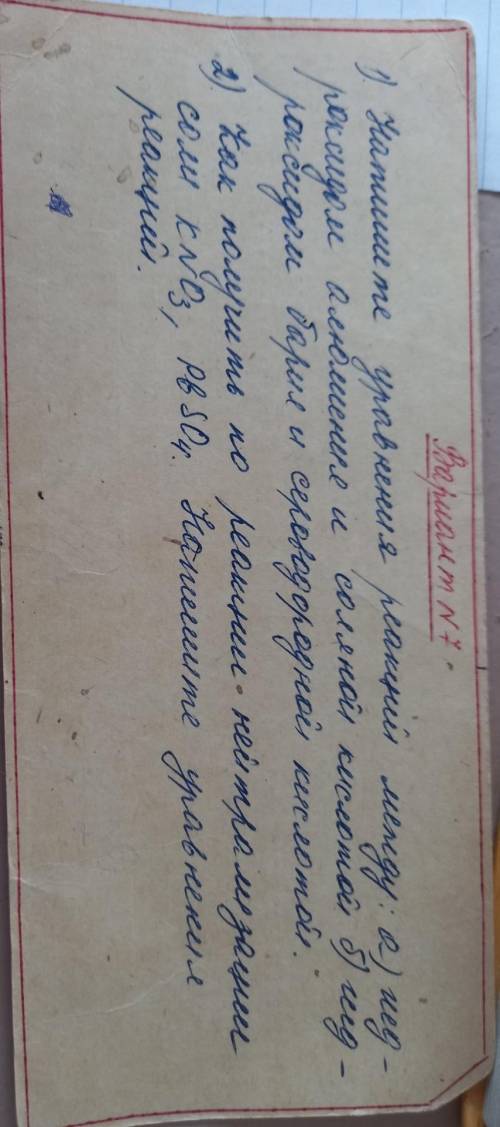 Вариант N 7.
1) Напишите уравнения реакций между: а) гид-
роксидом алюминия и соляной кислотой б) гид-
роксидом бария и сероводородной кислотой.
2) Как получить по реакции нейтрализации
соли KNO3, PbSO4. Напишите уравнения
реакций.